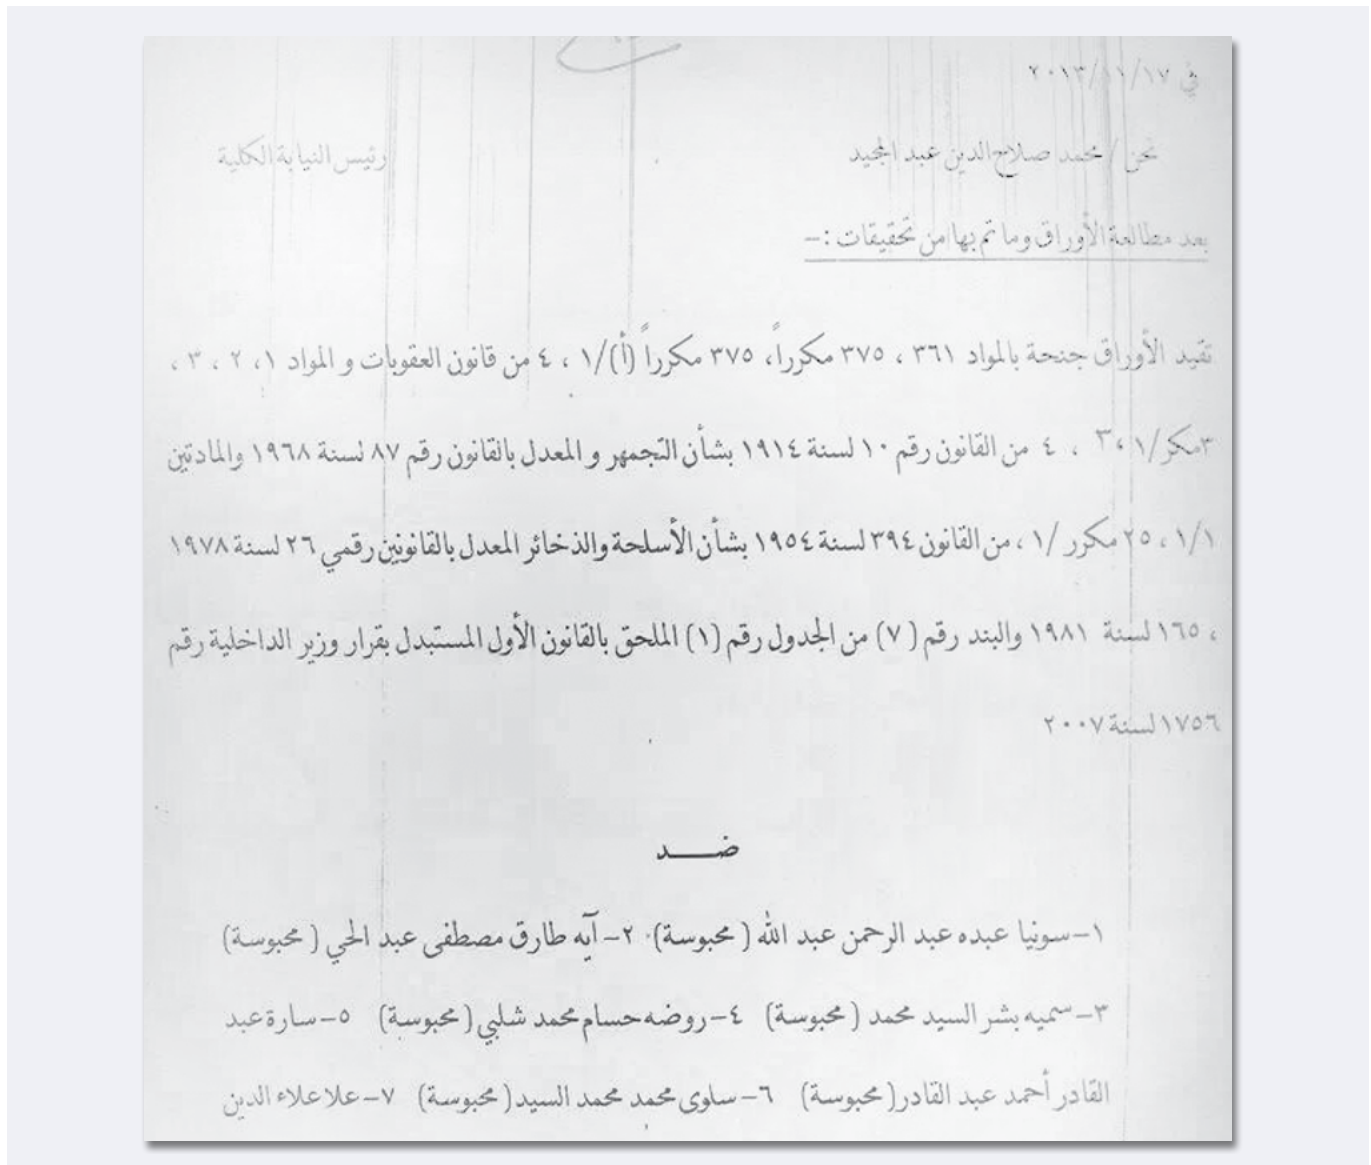 في ٢٠١٣/١١/١٧
نحن / محمد صلاح الدين عبد المجيد رئيس النيابة الكلية
بعد مطالعة الأوراق وما تم بها من تحقيقات :-
تقيد الأوراق جنحة بالمواد ٣٦١ ، ٣٧٥ مكرراً، ٣٧٥ مكرراً (أ)/١ ، ٤ من قانون العقوبات و المواد ١، ٢ ، ٣ ،
٣مكرر/١، ٣ ، ٤ من القانون رقم ١٠ لسنة ١٩١٤ بشأن التجمهر و المعدل بالقانون رقم ٨٧ لسنة ١٩٦٨ والمادتين
١/١ ، ٢٥ مكرر /١ ، من القانون ٣٩٤ لسنة ١٩٥٤ بشأن الأسلحة والذخائر المعدل بالقانونين رقمي ٢٦ لسنة ١٩٧٨
، ١٦٥ لسنة ١٩٨١ والبند رقم (٧) من الجدول رقم (١) الملحق بالقانون الأول المستبدل بقرار وزير الداخلية رقم
١٧٥٦ لسنة ٢٠٠٧
ضـــــد
١- سونيا عبده عبد الرحمن عبد الله (محبوسة) ٢- آيه طارق مصطفى عبد الحي (محبوسة)
٣- سميه بشر السيد محمد (محبوسة) ٤- روضه حسام محمد شلبي (محبوسة) ٥- سارة عبد
القادر أحمد عبد القادر (محبوسة) ٦- سلوى محمد محمد السيد (محبوسة) ٧- علا علاء الدين